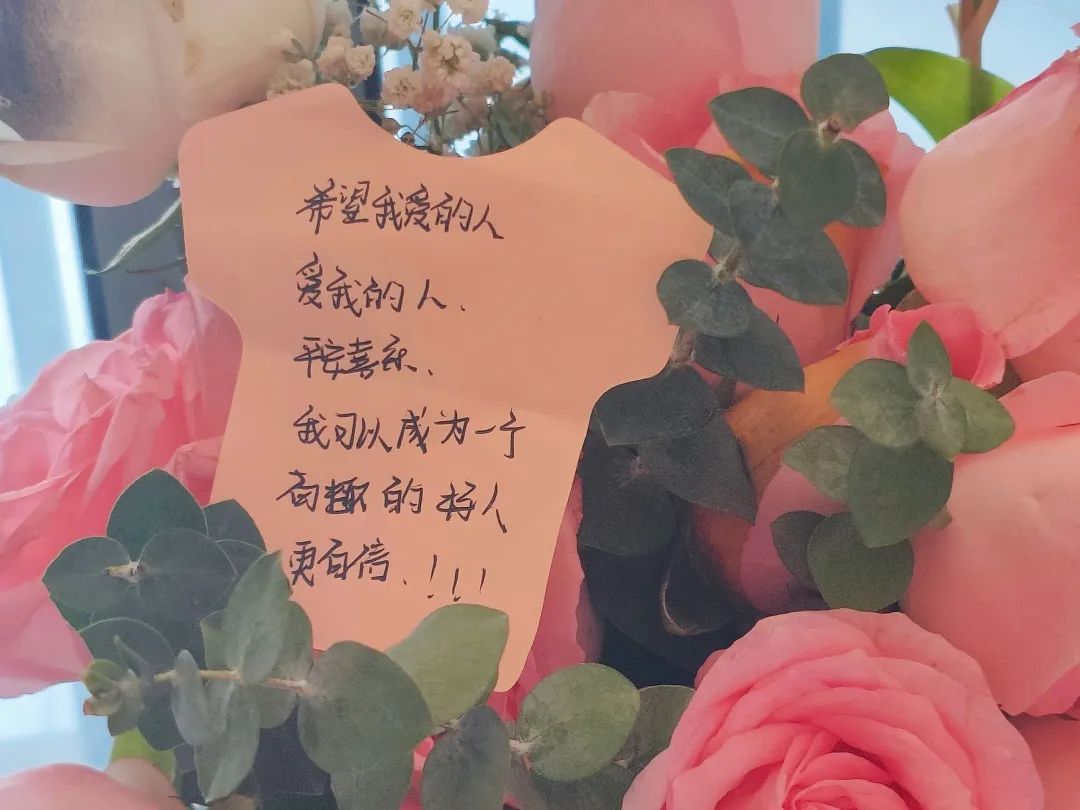 希望我爱的人
爱我的人、
平安喜乐、
我可以成为一个
有趣的好人
更自信、!!!